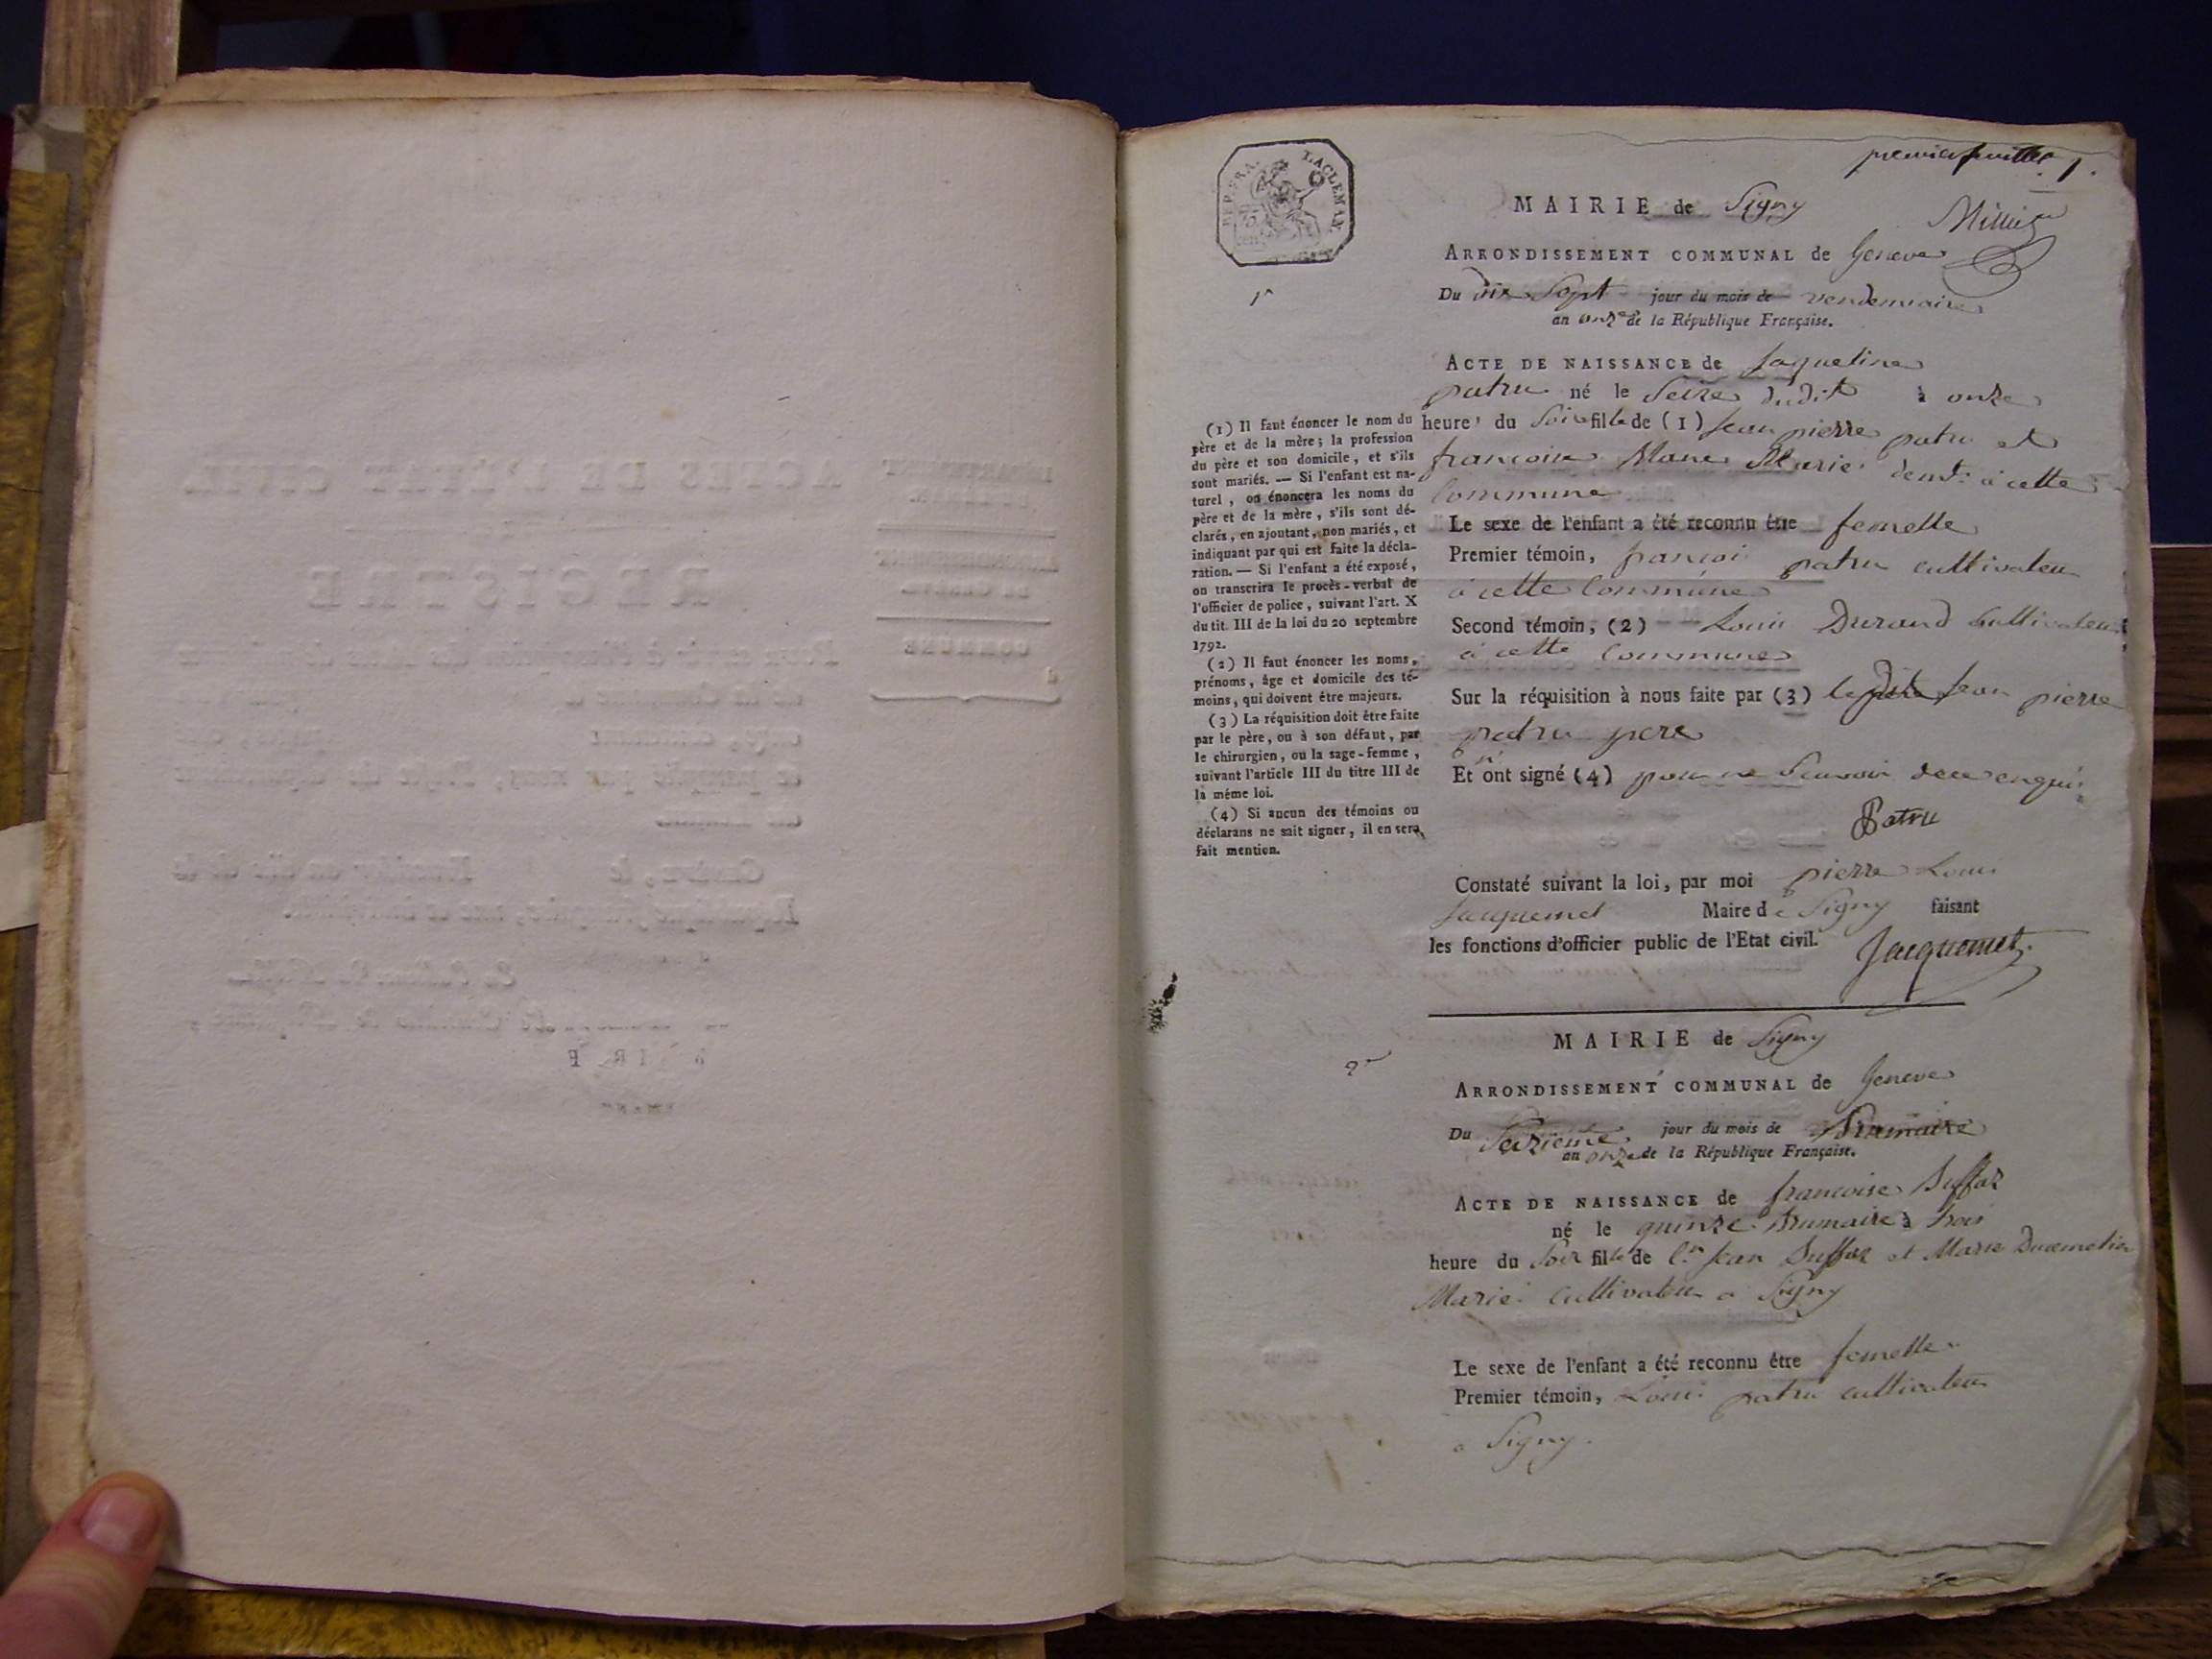 ACTES DE L'ÉTAT CIVIL
REGISTRE
COMMUNE
REP. FRA.
75
premier feuillet 1.
MAIRIE de Signy
ARRONDISSEMENT COMMUNAL de Geneve
Du dix Sept jour du mois de vendemiaire
an onze de la République Française.
1r
ACTE DE NAISSANCE de Jaqueline
patru né le Seize dudit à onze
heure du Soir fille de (1) Jean pierre patru et
francoise Marie demt: a cette
Commune
Le sexe de l'enfant a été reconnu être femelle
Premier témoin, francoi patru cultivateur
a cette Commune
Second témoin, (2) Louis Durand Cultivateur
a cette Commune
Sur la réquisition à nous faite par (3) Jean pierre
patru pere
Et ont signé (4) pour ne Scavoir de ce enquis
Patru
Constaté suivant la loi, par moi pierre Louis
Jacquemet Maire de Signy faisant
les fonctions d'officier public de l'Etat civil.
Jacquemet
(1) Il faut énoncer le nom du
père et de la mère; la profession
du père et son domicile, et s'ils
sont mariés. — Si l'enfant est na-
turel, on énoncera les noms du
père et de la mère, s'ils sont dé-
clarés, en ajoutant, non mariés, et
indiquant par qui est faite la décla-
ration. — Si l'enfant a été exposé,
on transcrira le procès-verbal de
l'officier de police, suivant l'art. X
du tit. III de la loi du 20 septembre
1792.
(2) Il faut énoncer les noms,
prénoms, âge et domicile des té-
moins, qui doivent être majeurs.
(3) La réquisition doit être faite
par le père, ou à son défaut, par
le chirurgien, ou la sage-femme,
suivant l'article III du titre III de
la même loi.
(4) Si aucun des témoins ou
déclarans ne sait signer, il en sera
fait mention.
2e
MAIRIE de Signy
ARRONDISSEMENT COMMUNAL de Geneve
Du Seizieme jour du mois de Brumaire
an onze de la République Française.
ACTE DE NAISSANCE de francoise Suffaz
né le quinze Brumaire à trois
heure du Soir fille de Jean Suffaz et Marie
Marié cultivateur a Signy
Le sexe de l'enfant a été reconnu être femelle
Premier témoin, Louis patru cultivateur
a Signy.